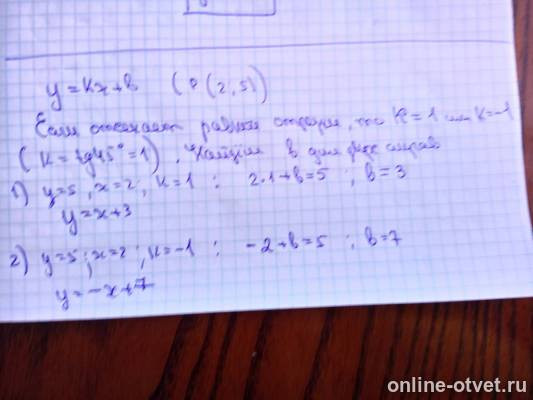 y = kx + b ( P (2, 5))
Если отсекает равные отрезки, то k = 1 или k = -1
( k = tg 45° = 1) . Найдём b для
1) y = 5, x = 2, k = 1 : 2·1 + b = 5 ; b = 3
y = x + 3
2) y = 5; x = 2; k = -1 : -2 + b = 5 ; b = 7
y = -x + 7
online-otvet.ru